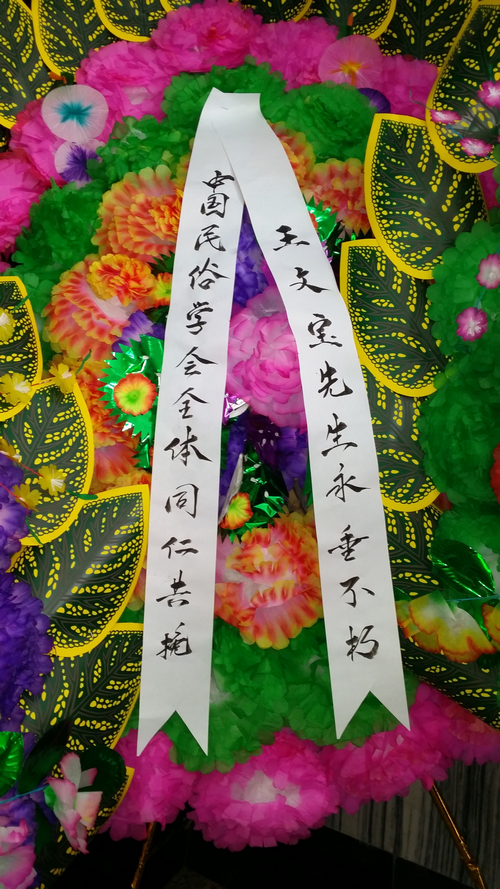 王文宝先生永垂不朽
中国民俗学会全体同仁共挽